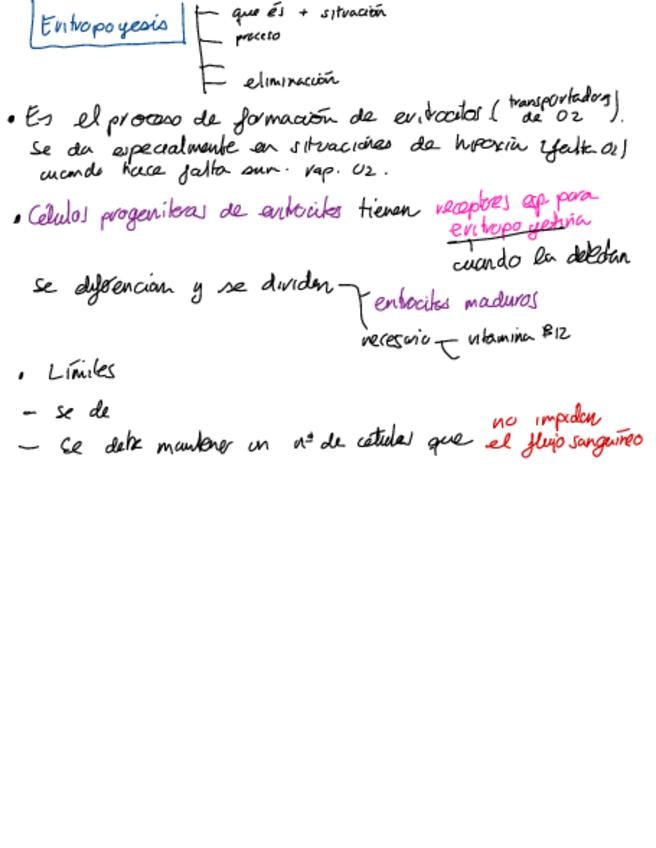 Eritropoyesis
que és + situación
proceso
eliminación
• Es el proceso de formación de eritrocitos ( transportadores de O2 ).
Se da especialmente en situaciones de hipoxia (falta O2)
cuando hace falta sum. rap. O2.
• Células progenitoras de eritrocitos tienen receptores esp para
eritropoyetina
cuando la detectan
se diferencian y se dividen
eritrocitos maduros
necesario vitamina B12
• Límites
- se de
- se debe mantener un nº de células que no impidan
el flujo sanguíneo